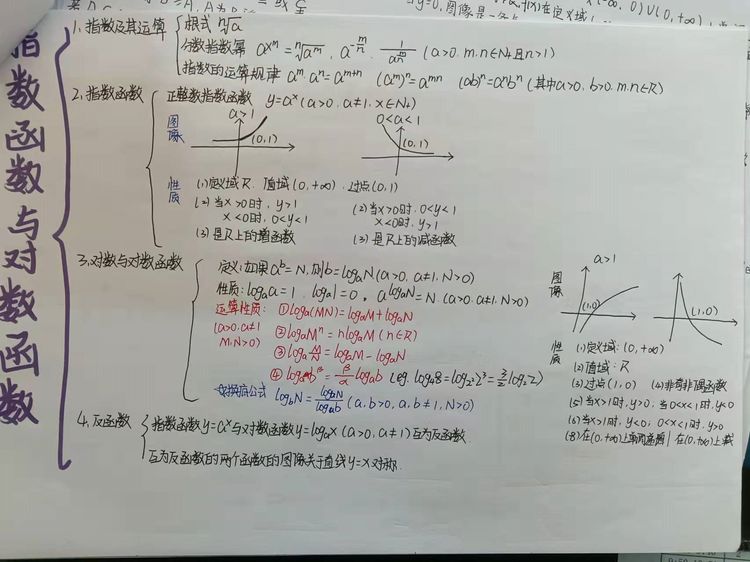 指数函数与对数函数
1、指数及其运算
根式 ⁿ√a
分数指数幂 a^(m/n) = ⁿ√(a^m), a^(-m/n) = 1/a^(m/n) (a>0. m.n∈N+且n>1)
指数的运算规律 a^m·a^n=a^(m+n) (a^m)^n=a^(mn) (ab)^n=a^n b^n (其中a>0, b>0. m.n∈R)
2、指数函数
正整数指数函数 y=a^x (a>0, a≠1, x∈N+)
图像
a>1
(0,1)
0<a<1
(0,1)
性质
(1)定义域R, 值域(0,+∞). 过点(0,1)
(2)当x>0时, y>1
x<0时, 0<y<1
(3)是R上的增函数
(2)当x>0时, 0<y<1
x<0时, y>1
(3)是R上的减函数
3、对数与对数函数
定义:如果a^b=N, 则b=log_a N (a>0, a≠1, N>0)
性质: log_a a=1, log_a 1=0, a^(log_a N)=N (a>0. a≠1. N>0)
运算性质: ①log_a(MN)=log_a M+log_a N
(a>0.a≠1
M.N>0)
②log_a M^n=nlog_a M (n∈R)
③log_a M/N=log_a M-log_a N
④ = β/α log_a b
换底公式 log_b N= log_a N/log_a b (a,b>0, a,b≠1, N>0)
图像
a>1
(1,0)
(1,0)
性质
(1)定义域: (0,+∞)
(2)值域: R
(3)过点(1,0) (4)非奇非偶函数
(5)当x>1时, y>0; 当0<x<1时, y<0
(6)当x>1时, y<0; 0<x<1时, y>0
(8)在(0,+∞)上 | 在(0,+∞)上
4、反函数
指数函数y=a^x与对数函数y=log_a x (a>0, a≠1)互为反函数
互为反函数的两个函数的图像关于直线y=x对称.